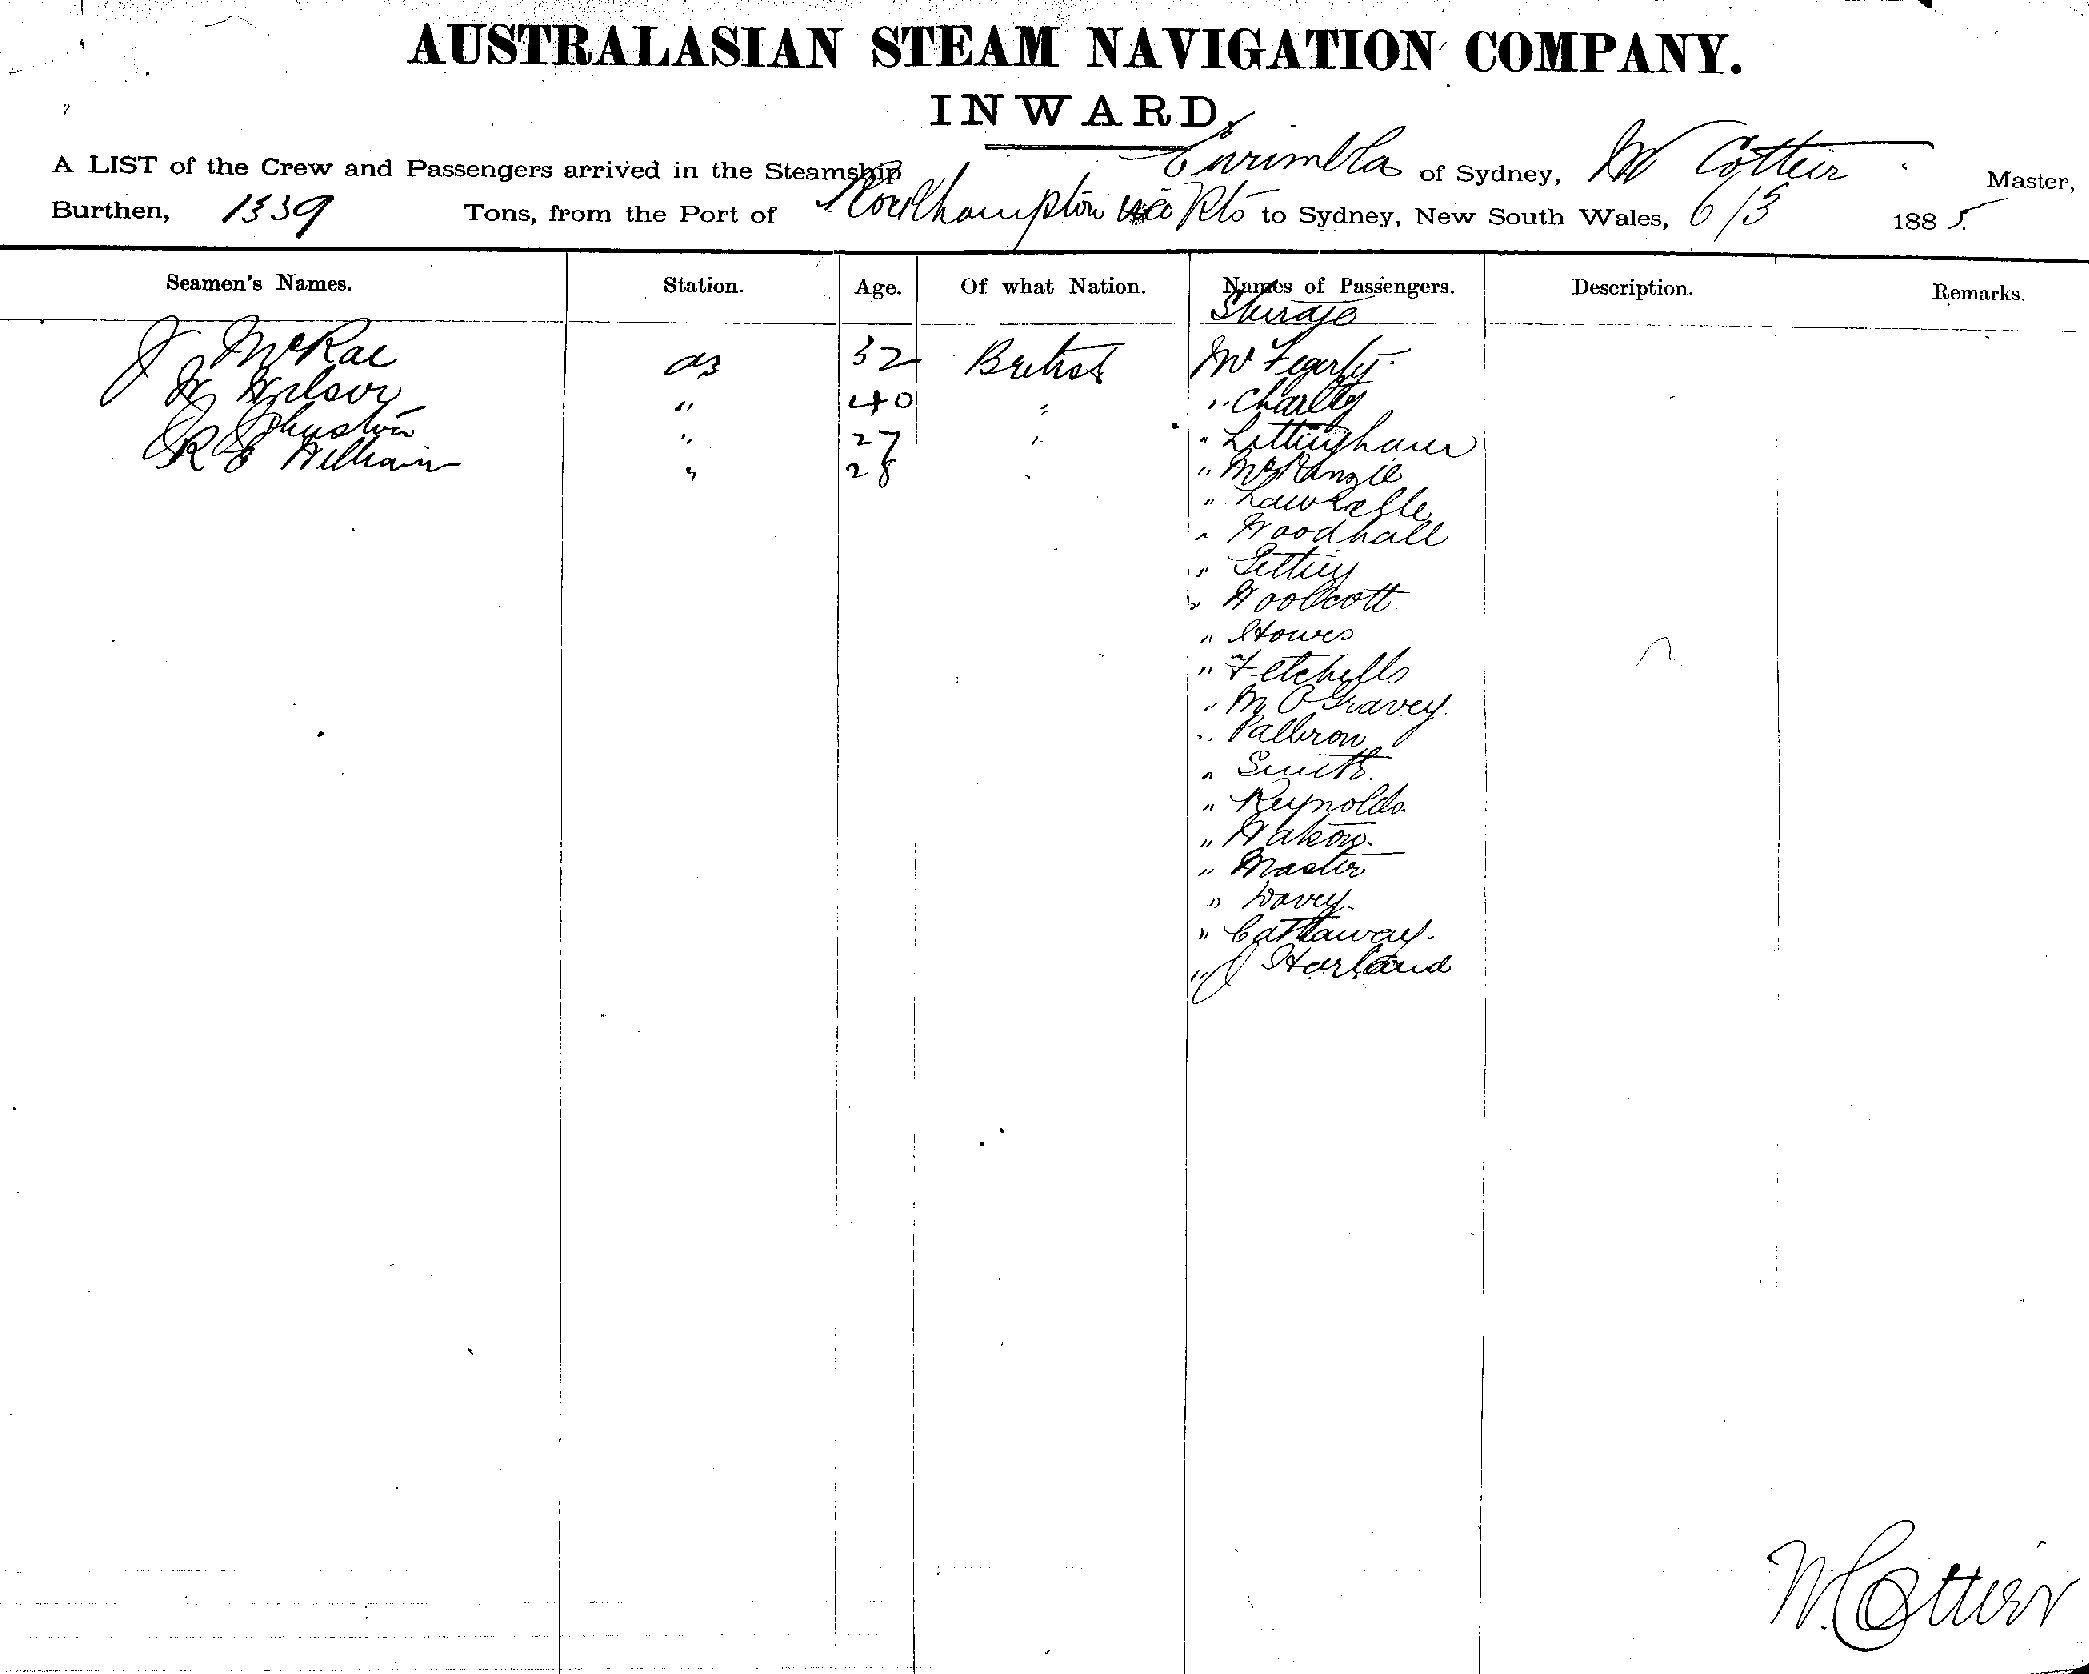 AUSTRALASIAN STEAM NAVIGATION COMPANY.
INWARD,
A LIST of the Crew and Passengers arrived in the Steamship Eurimbla of Sydney, W Cottier Master,
Burthen, 1339 Tons, from the Port of Rockhampton via Pts to Sydney, New South Wales, 6/3 1885
Seamen's Names. Station. Age. Of what Nation. Names of Passengers. Description. Remarks.
Steerage
J McRae as 32 British Mr
W Wilson " 40 "
J Johnston " 27 " "
R E William " 28 " " McKenzie
"
" Woodhall
"
" Woolcott
" Howes
" Fetchells
" M O Gravey
"
" Smith
" Reynolds
" Watson
" Master
" Davey
" Cathaway
" J Harland
W Cottier